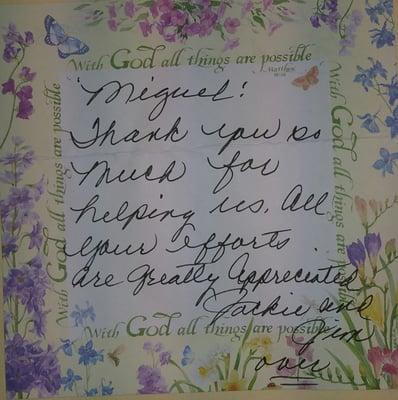 With God all things are possible
Matthew
With God all things are possible
With God all things are possible
Miguel!
Thank you so
Much for
helping us. All
your efforts
are Greatly Appreciated
Jackie and
Jim
over
With God all things are possible